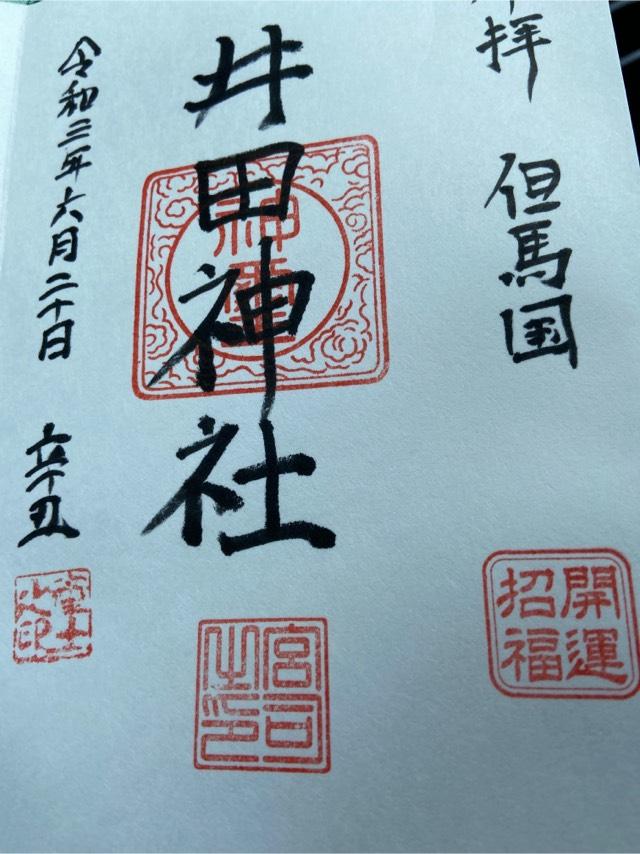 拝
但馬国
開運
招福
井田神社
神璽
宮司
之印
令和三年六月二十日